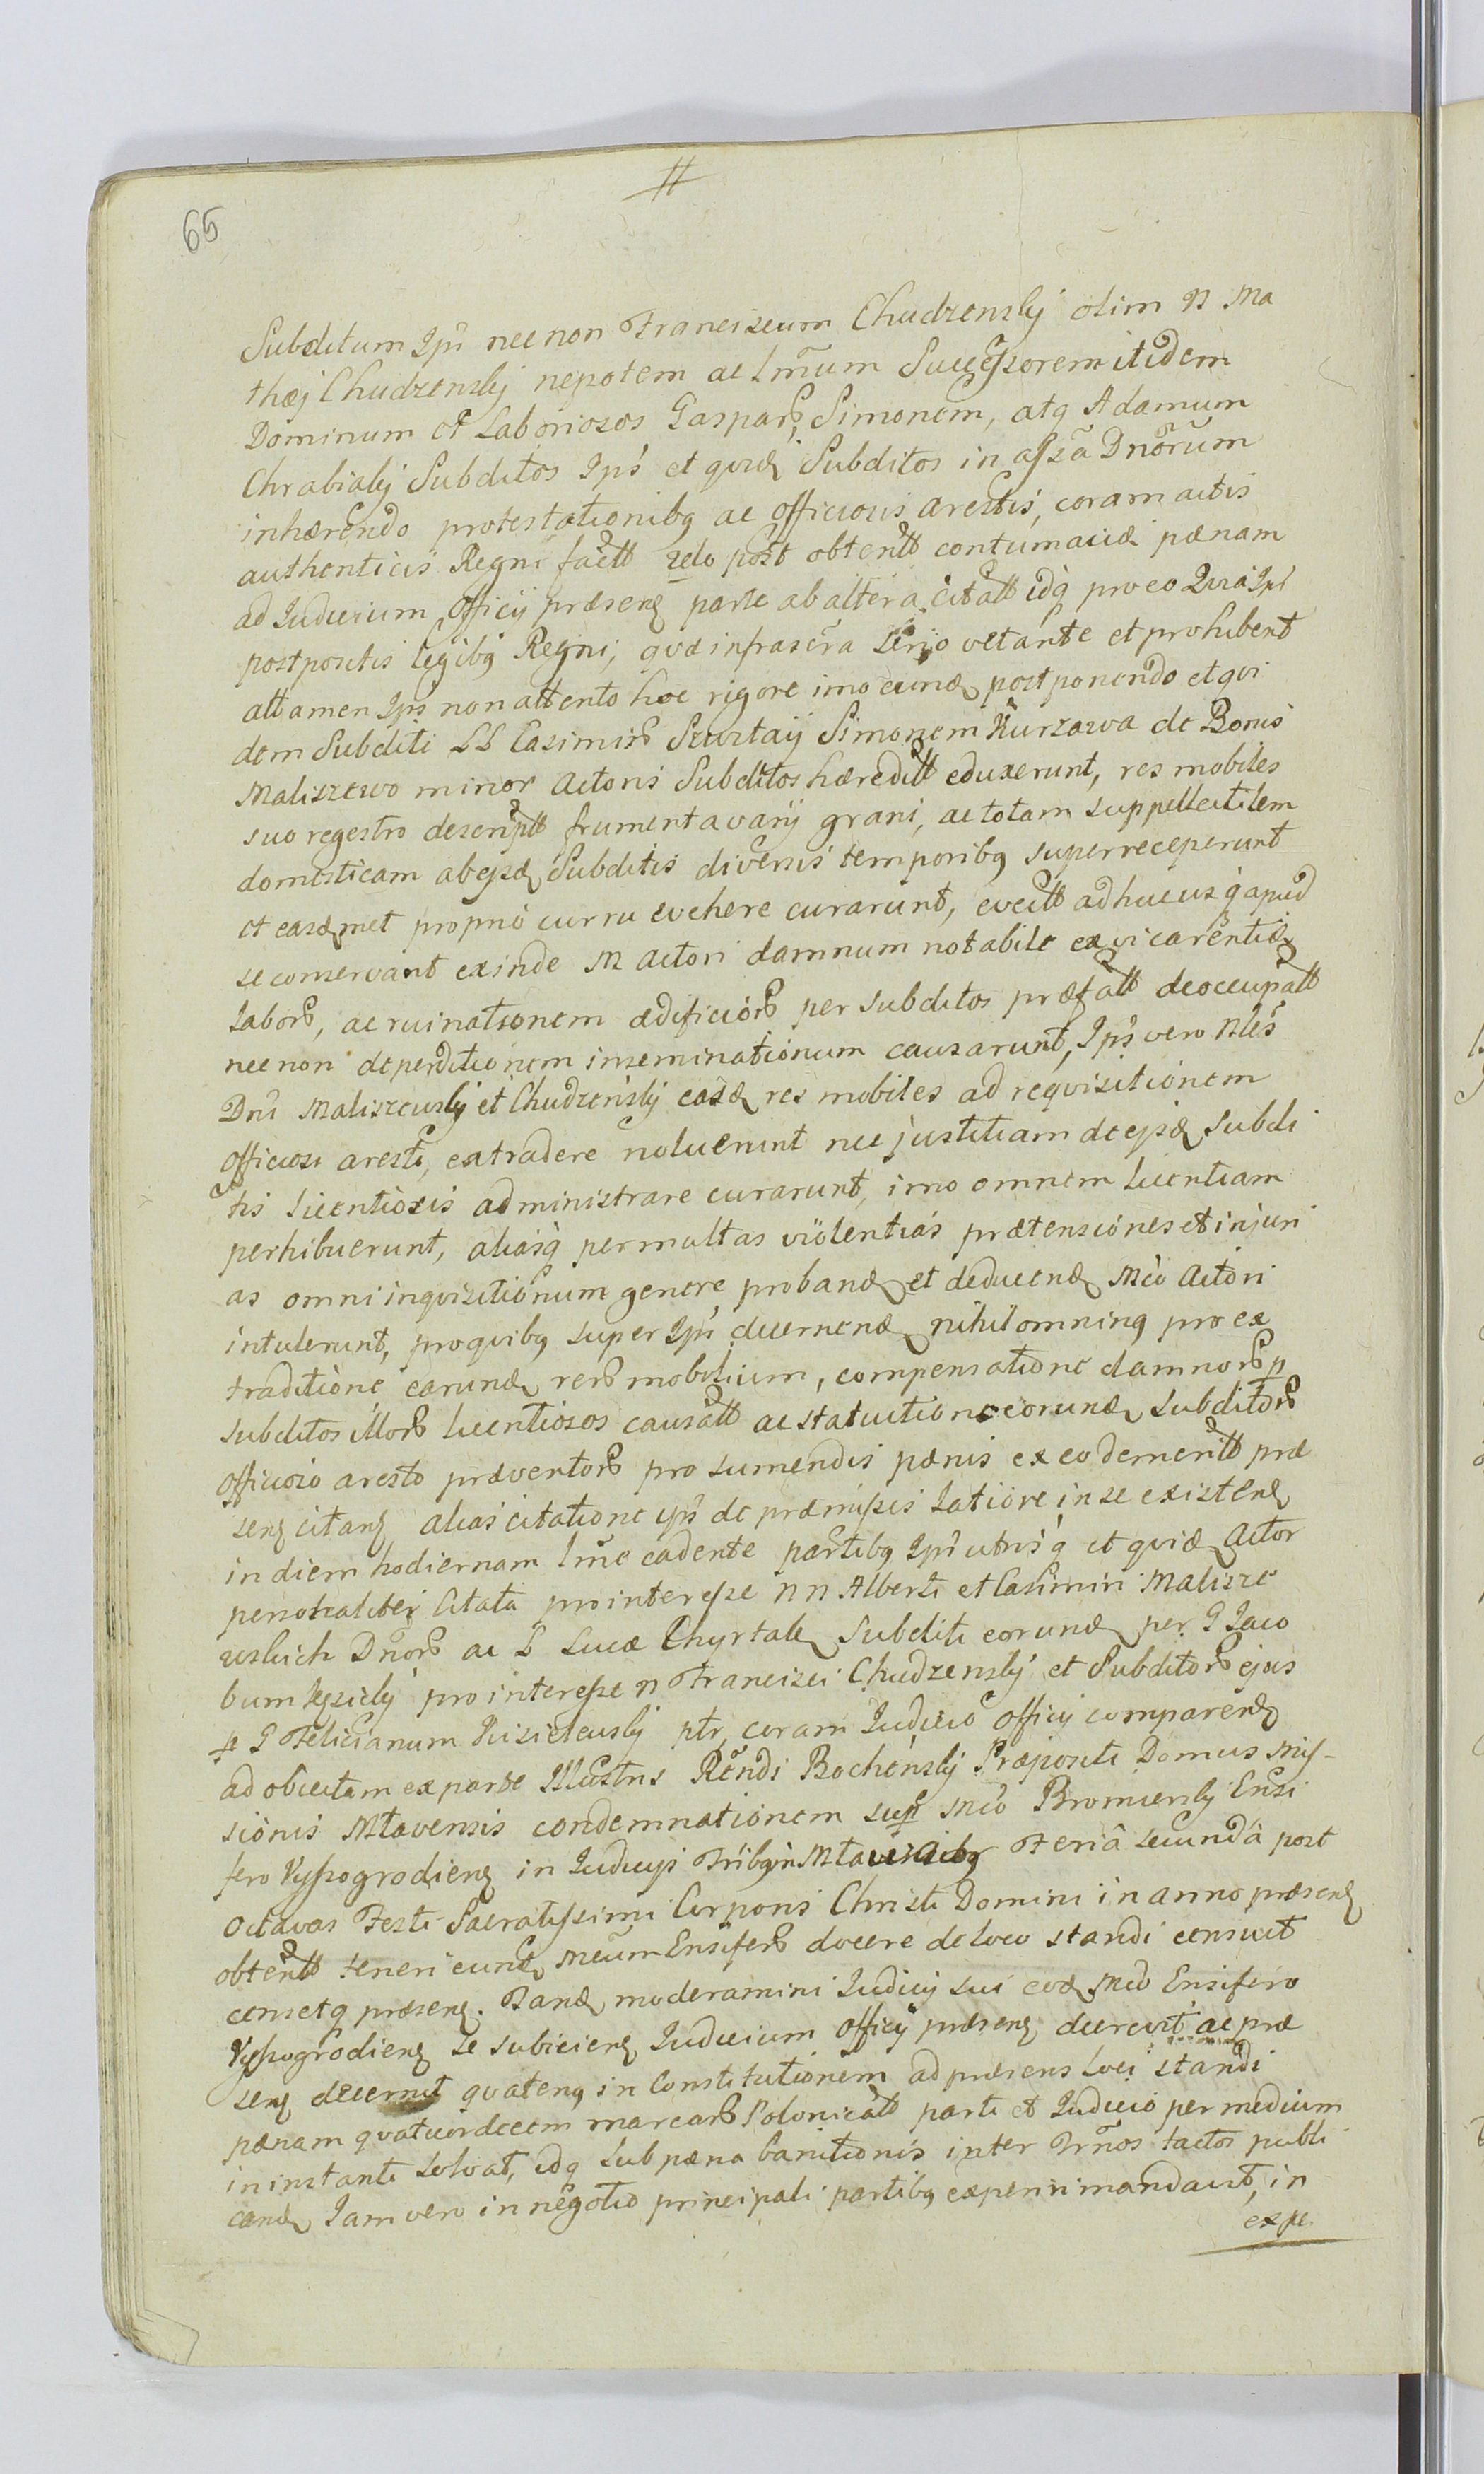 65
#
Subditum Ip̃i nec non Franciscum Chudzensky olim N Ma
thæj Chudzensky nepotem ac lm̃um Successorem itidem
Dominum et Laboriosos Gaspar̃, Simonem, atq Adamum
Chrabialy Subditos Ips̃ et quid Subditos in assa Dnõrum
inhærendo protestationibq ac officiosis arestis, coram actis
authenticis Regni factt zelo post obtentt contumaciæ pænam
ad Judicium Officij præsenq parte ab altera citatt idq pro eo Quia Ips̃
postpositis legibq Regni, qvæ infrascr̃a serio vetante et prohibent
attamen Ips̃ non attento hoc rigore imo eund postponendo et qvi
dem Subditi LL Casimir̃ Szurtaij Simonem Kurzawa de Bonis
Maliszewo minor Actoris Subditos hæreditt eduxerunt, res mobiles
suo regestro descriptt frumenta varij grani, ac totam suppellectilem
domesticam ab ejsd Subditis diversis temporibq superreceperunt
et easdmet proprio curru evehere curarunt, evectt adhucusq apud
se conservant exinde M Actori damnum notabile ex vi carentiæ
labor̃, ac ruinationem ædificior̃ per subditos præfatt deoccupatt
nec non deperditionem inseminationum causarunt, Ips̃ vero Nles
Dñi Maliszewsky et Chudzensky easd res mobiles ad reqvisitionem
officiosi aresti, extradere noluerunt nec justitiam de ejsd Subdi
tis licentiosis administrare curarunt, imo omnem licentiam
perhibuerunt, aliasq permultas violentias prætensiones et injuri
as omni inqvisitionum genere proband et deducend Mco Actori
intulerunt, pro qvibq super Ips̃ decernend nihilominq pro ex
traditione earund rer̃ mobilium, compensatione damnor̃ p
subditos illor̃ licentiosos causatt ac statuitione eorund subditor̃
officioso aresto præventor̃ pro sumendis pænis ex eo demeritt præ
senq citanq alias citatione ips̃ de præmissis latiore in se existenq
in diem hodiernam lm̃e cadente partibq Ips̃ utrisq et qvid Actor
personaliter Citata pro interesse N N Alberti et Casimiri Malisze
wskich Dñor̃ ac L Lucæ Chyrtak Subditi eorund per G Jaco
bum Kęsicky pro interesse N Francisci Chudzensky et Subditor̃ ejus
p G Felicianum Kisielewsky ptr̃ coram Judicio Officij comparenq
ad objectam ex parte Illustris Rẽndi Bochensky Præpositi Domus Mis-
sionis Mlavensis condemnationem sup̃ Mco Bromiersky Ensi
fero Vyssogrodienq in Judicijs Fribq in Mlaviensibq Feriâ secundâ post
Octavas Festi Sacratissimi Corporis Christi Domini in anno præsenq
obtentt teneri eund Mcum Ensifer̃ docere de loco standi censuit
censetq præsenq. Tand moderamini Judicij sui eod Mco Ensifero
Vyssogrodienq se subicienq Judicium Officij præsenq decrevit ac præ
senq decernit qvatenq in Constitutionem ad præsens loci standi
pænam qvatuordecem marcar̃ Polonicatt parti et Judicio per medium
in instanti solvat, idq sub pæna banitionis inter Trm̃os tactos publi
cand Jam vero in negotio principali partibq experiri mandavit, in
expe.